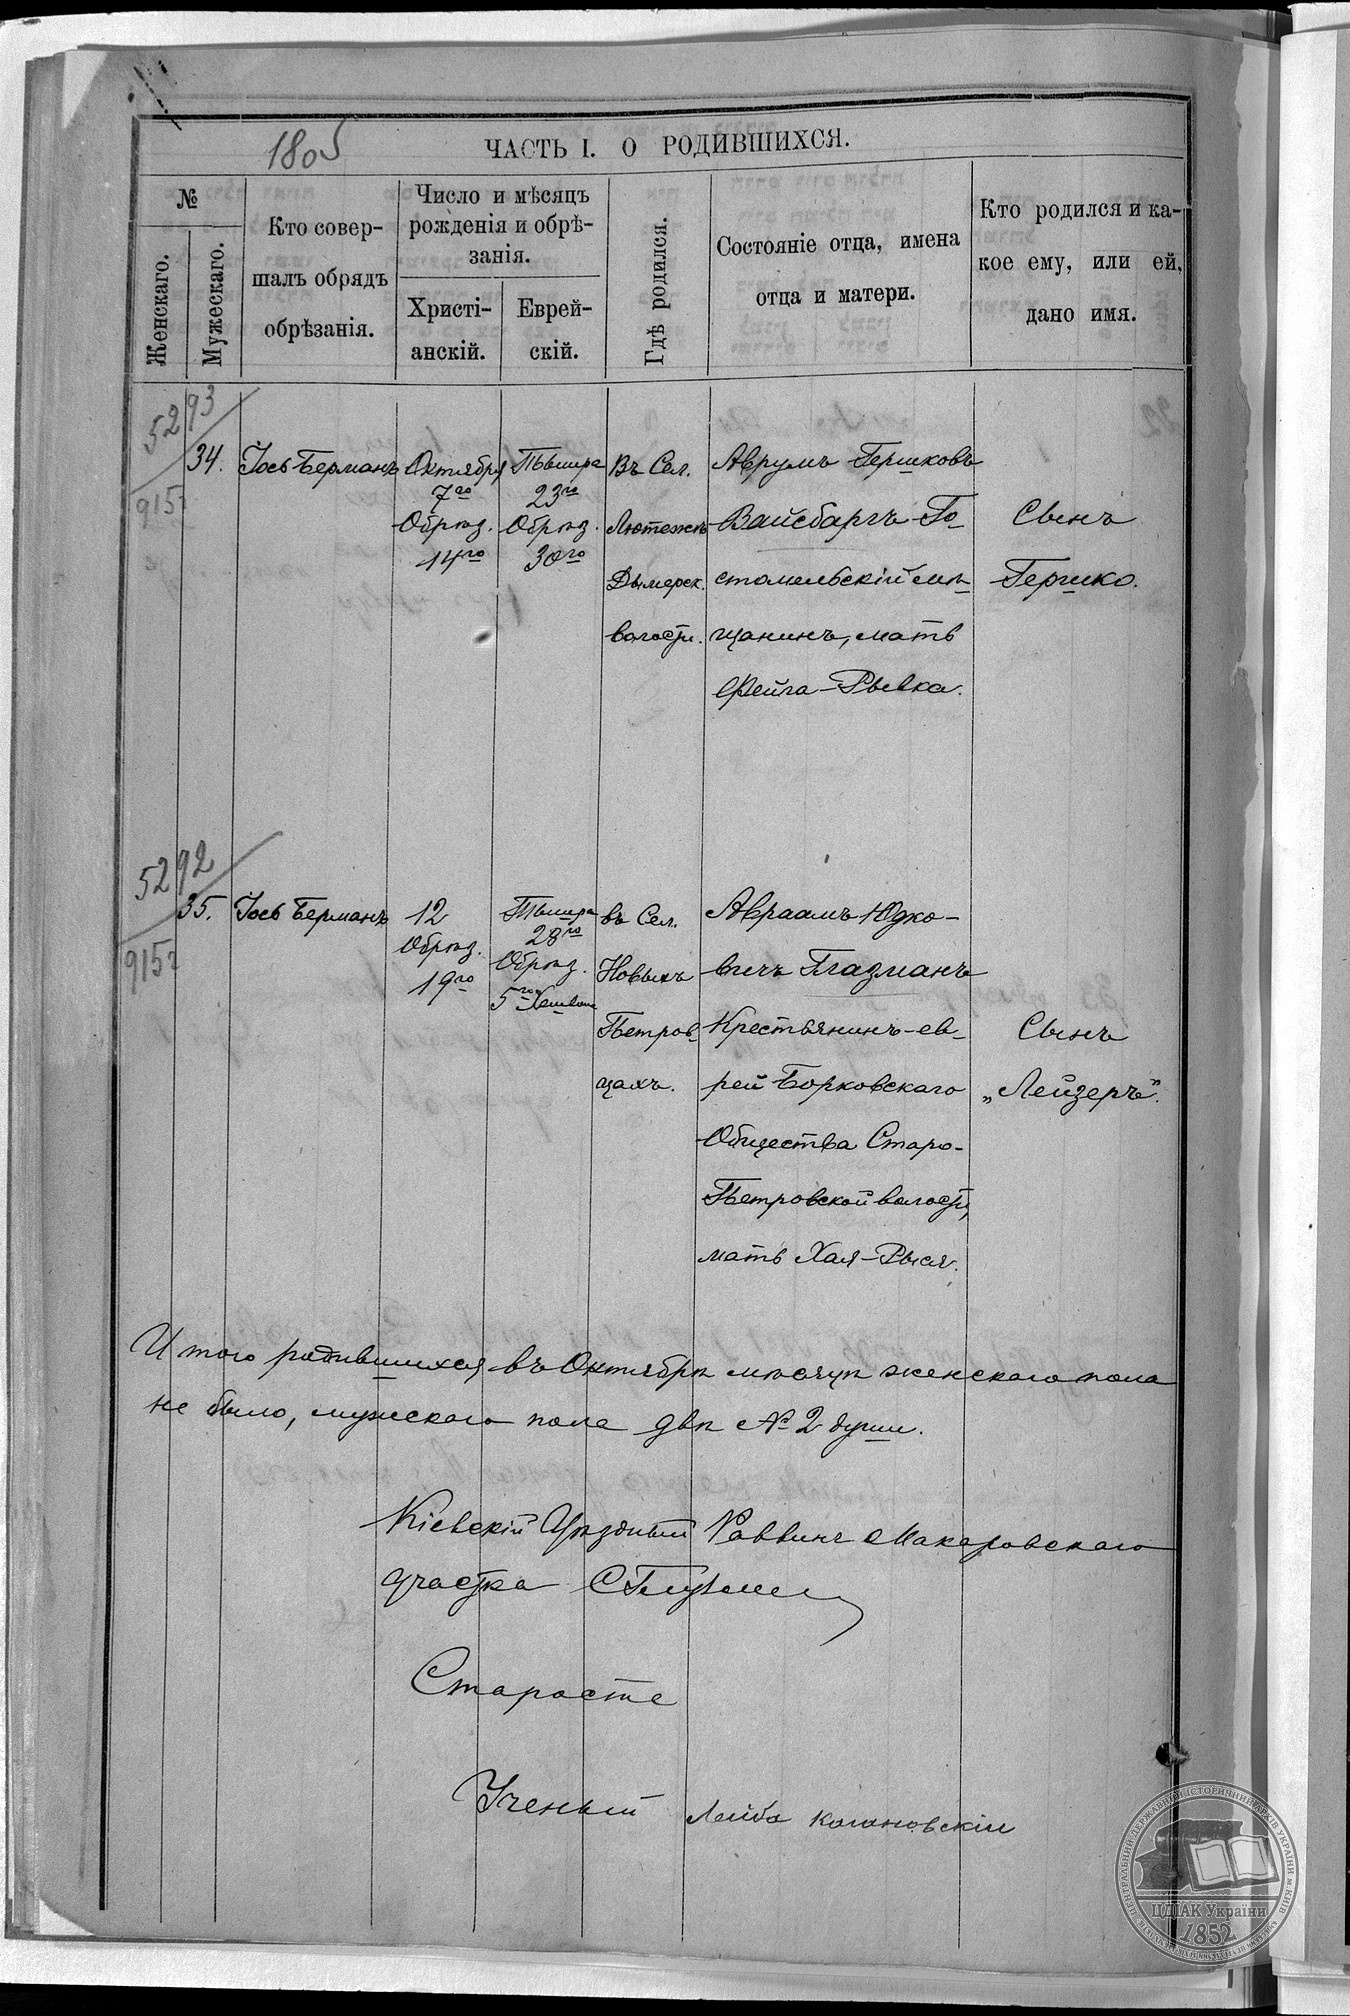 1805
ЧАСТЬ I. О РОДИВШИХСЯ.
№
Женскаго.
Мужескаго.
Кто совер-
шалъ обрядъ
обрѣзанія.
Число и мѣсяцъ
рожденія и обрѣ-
занія.
Христі-
анскій.
Еврей-
скій.
Гдѣ родился.
Состояніе отца, имена
отца и матери.
Кто родился и ка-
кое ему, или ей,
дано имя.
5293
915
34.
Іось Берманъ
Октября
7го
Обрѣз.
14го
Тышре
23го
Обрѣз.
30го
Въ Сел.
Лютежъ
Дымерск.
волости.
Аврумъ Гершковъ
Вайсбаргъ Го
стомельскій мѣ
щанинъ, мать
Фейга-Рывка.
Сынъ
Гершко.
5292
915
35.
Іось Берманъ
12
Обрѣз.
19го
Тышре
28го
Обрѣз.
5го Хешвана
въ Сел.
Новыхъ
Петров
цахъ.
Авраамъ Юдко-
вичъ Глазманъ
Крестьянинъ-ев-
рей Борковскаго
Общества Старо-
Петровской волости,
мать Хая-Рыся.
Сынъ
„Лейзеръ“.
Итого родившихся въ Октябрѣ мѣсяцѣ женскаго пола
не было, мужскаго пола двѣ № 2 души.
Кіевскій Уѣздный Раввинъ Макаровскаго
участка
Староста
Ученый Лейба Кагановскій
ЦЕНТРАЛЬНИЙ ДЕРЖАВНИЙ ІСТОРИЧНИЙ АРХІВ УКРАЇНИ м. КИЇВ
ЦДІАК України
1852